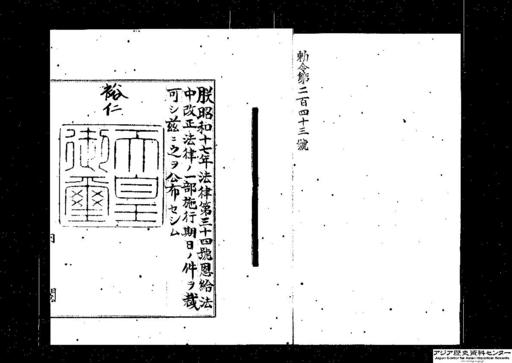 勅令第二百四十三號
朕昭和十七年法律第三十四號恩給法
中改正法律ノ一部施行期日ノ件ヲ裁
可シ茲ニ之ヲ公布セシム
裕仁
天皇
御璽
アジア歴史資料センター
Japan Center for Asian Historical Records